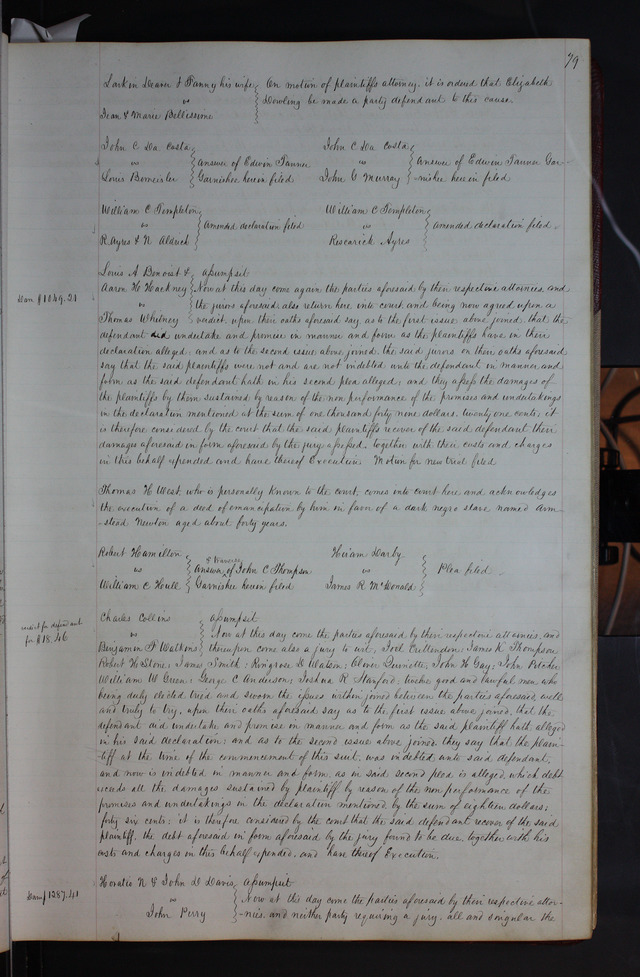 79
Larkin Deaver & Fanny his wife } On motion of plaintiffs attorney it is ordered that Elizabeth
vs } Dowling be made a party defendant to this cause.
Jean & Marie Bellissime
John C Da Costa
vs } Answer of Edwin Tanner
Louis Bomeisler } Garnishee herein filed
John C Da Costa
vs } Answer of Edwin Tanner Gar-
John G Murray } nishee herein filed
William C Templeton
vs } Amended declaration filed
R Ayres & N Aldrich
William C Templeton
vs } Amended declaration filed.
Rescarick Ayres
Louis A Benoist & } Assumpsit
Dam $1049.21
Aaron H Hackney } Now at this day come again the parties aforesaid by their respective attornies and
vs } the jurors aforesaid also return here into court and being now agreed upon a
Thomas Whitney } verdict, upon their oaths aforesaid say as to the first issue above joined, that the
defendant did undertake and promise in manner and form as the plaintiffs have in their
declaration alleged: and as to the second issue above joined, the said jurors on their oaths aforesaid
say that the said plaintiffs were not and are not indebted unto the defendant in manner and
form as the said defendant hath in his second plea alleged; and they assess the damages of
the plaintiffs by them sustained by reason of the non performance of the promises and undertakings
in the declaration mentioned at the sum of one thousand forty nine dollars, twenty one cents; it
is therefore considered by the court that the said plaintiffs recover of the said defendant their
damages aforesaid in form aforesaid by the jury assessed, together with their costs and charges
in this behalf expended and have thereof Execution. Motion for new trial filed
Thomas H West who is personally known to the court, comes into court here and acknowledges
the execution of a deed of emancipation by him in favor of a dark negro slave named Arm
-stead Newton aged about forty years.
Robert Hamilton
vs } Answer of John C Thompson
William C Houll } Garnishee herein filed
Hiram Darby
vs } Plea filed.
James R McDonald
Charles Collins } Assumpsit
verdict for defendant
for $18.46
vs } Now at this day come the parties aforesaid by their respective attornies, and
Benjamin F Watkins } thereupon come also a jury to wit, Joel Cullendon; James K Thompson
Robert H Stone; James Smith; Ringrose D Watson; Oliver Quinette; John H Gay; John
William W Green; George C Anderson; Joshua R Stanford, twelve good and lawful men, who
being duly elected tried and sworn the issues within joined between the parties aforesaid, well
and truly to try, upon their oaths aforesaid say as to the first issue above joined, that the
defendant did undertake and promise in manner and form as the said plaintiff hath alleged
in his said declaration; and as to the second issue above joined, they say that the plain-
tiff at the time of the commencement of this suit, was indebted unto said defendant,
and now is indebted in manner and form, as in said second plea is alleged, which debt
exceeds all the damages sustained by plaintiff by reason of the non performance of the
promises and undertakings in the declaration mentioned by the sum of eighteen dollars;
forty six cents; it is therefore considered by the court that the said defendant recover of the said
plaintiff, the debt aforesaid in form aforesaid by the jury found to be due, together with his
costs and charges in this behalf expended, and have thereof Execution.
Horatio N & John D Davis } Assumpsit
Dam $1287.41
vs } Now at this day come the parties aforesaid by their respective attor-
John Perry } nies, and neither party requiring a jury, all and singular the